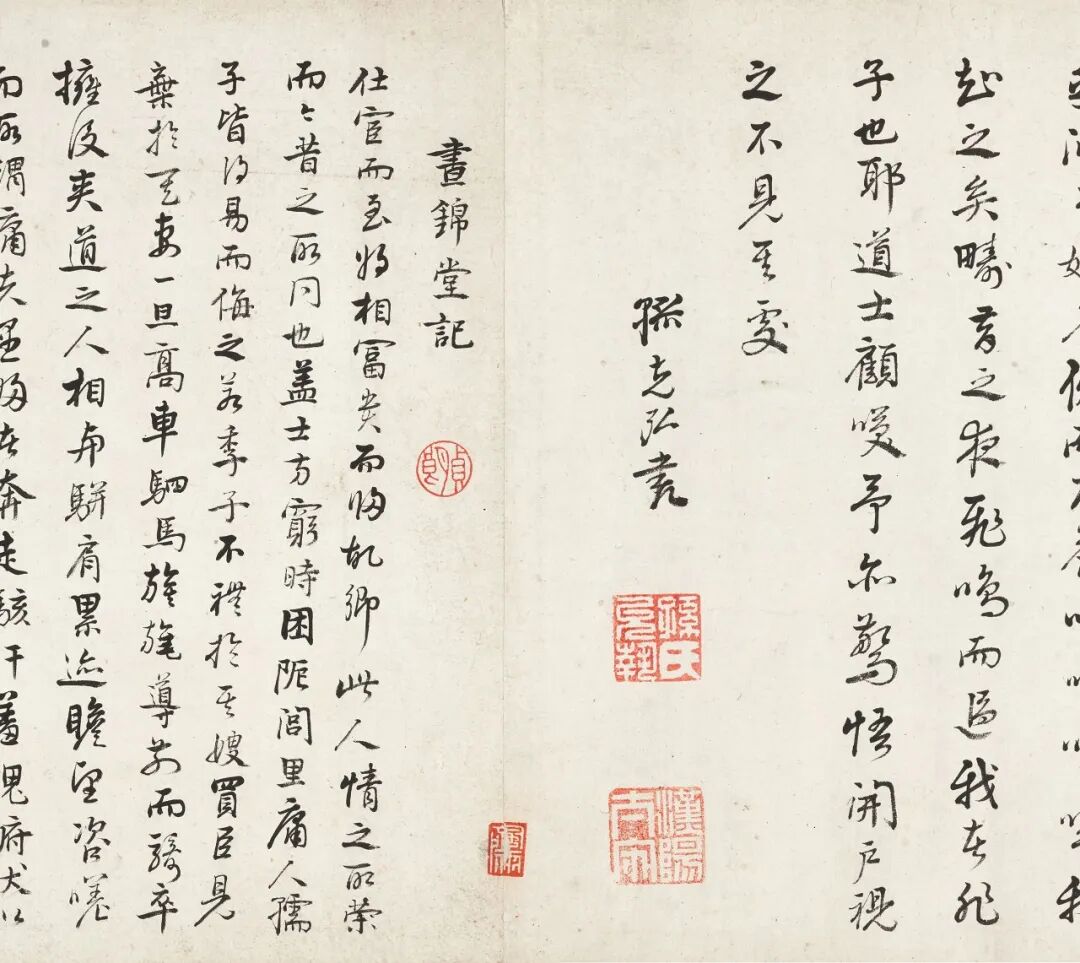 知之矣疇昔之夜飛鳴而過我者非
子也耶道士顧笑予亦驚悟開戶視
之不見其處
孫克弘書
孫氏允執
漢陽太守
晝錦堂記
仕宦而至將相富貴而歸故鄉此人情之所榮
而今昔之所同也蓋士方窮時困阨閭里庸人孺
子皆得易而侮之若季子不禮於其嫂買臣見
棄於其妻一旦高車駟馬旗旄導前而騎卒
擁後夾道之人相與駢肩累迹瞻望咨嗟
而所謂庸夫愚婦者奔走駭汗羞愧俯伏以